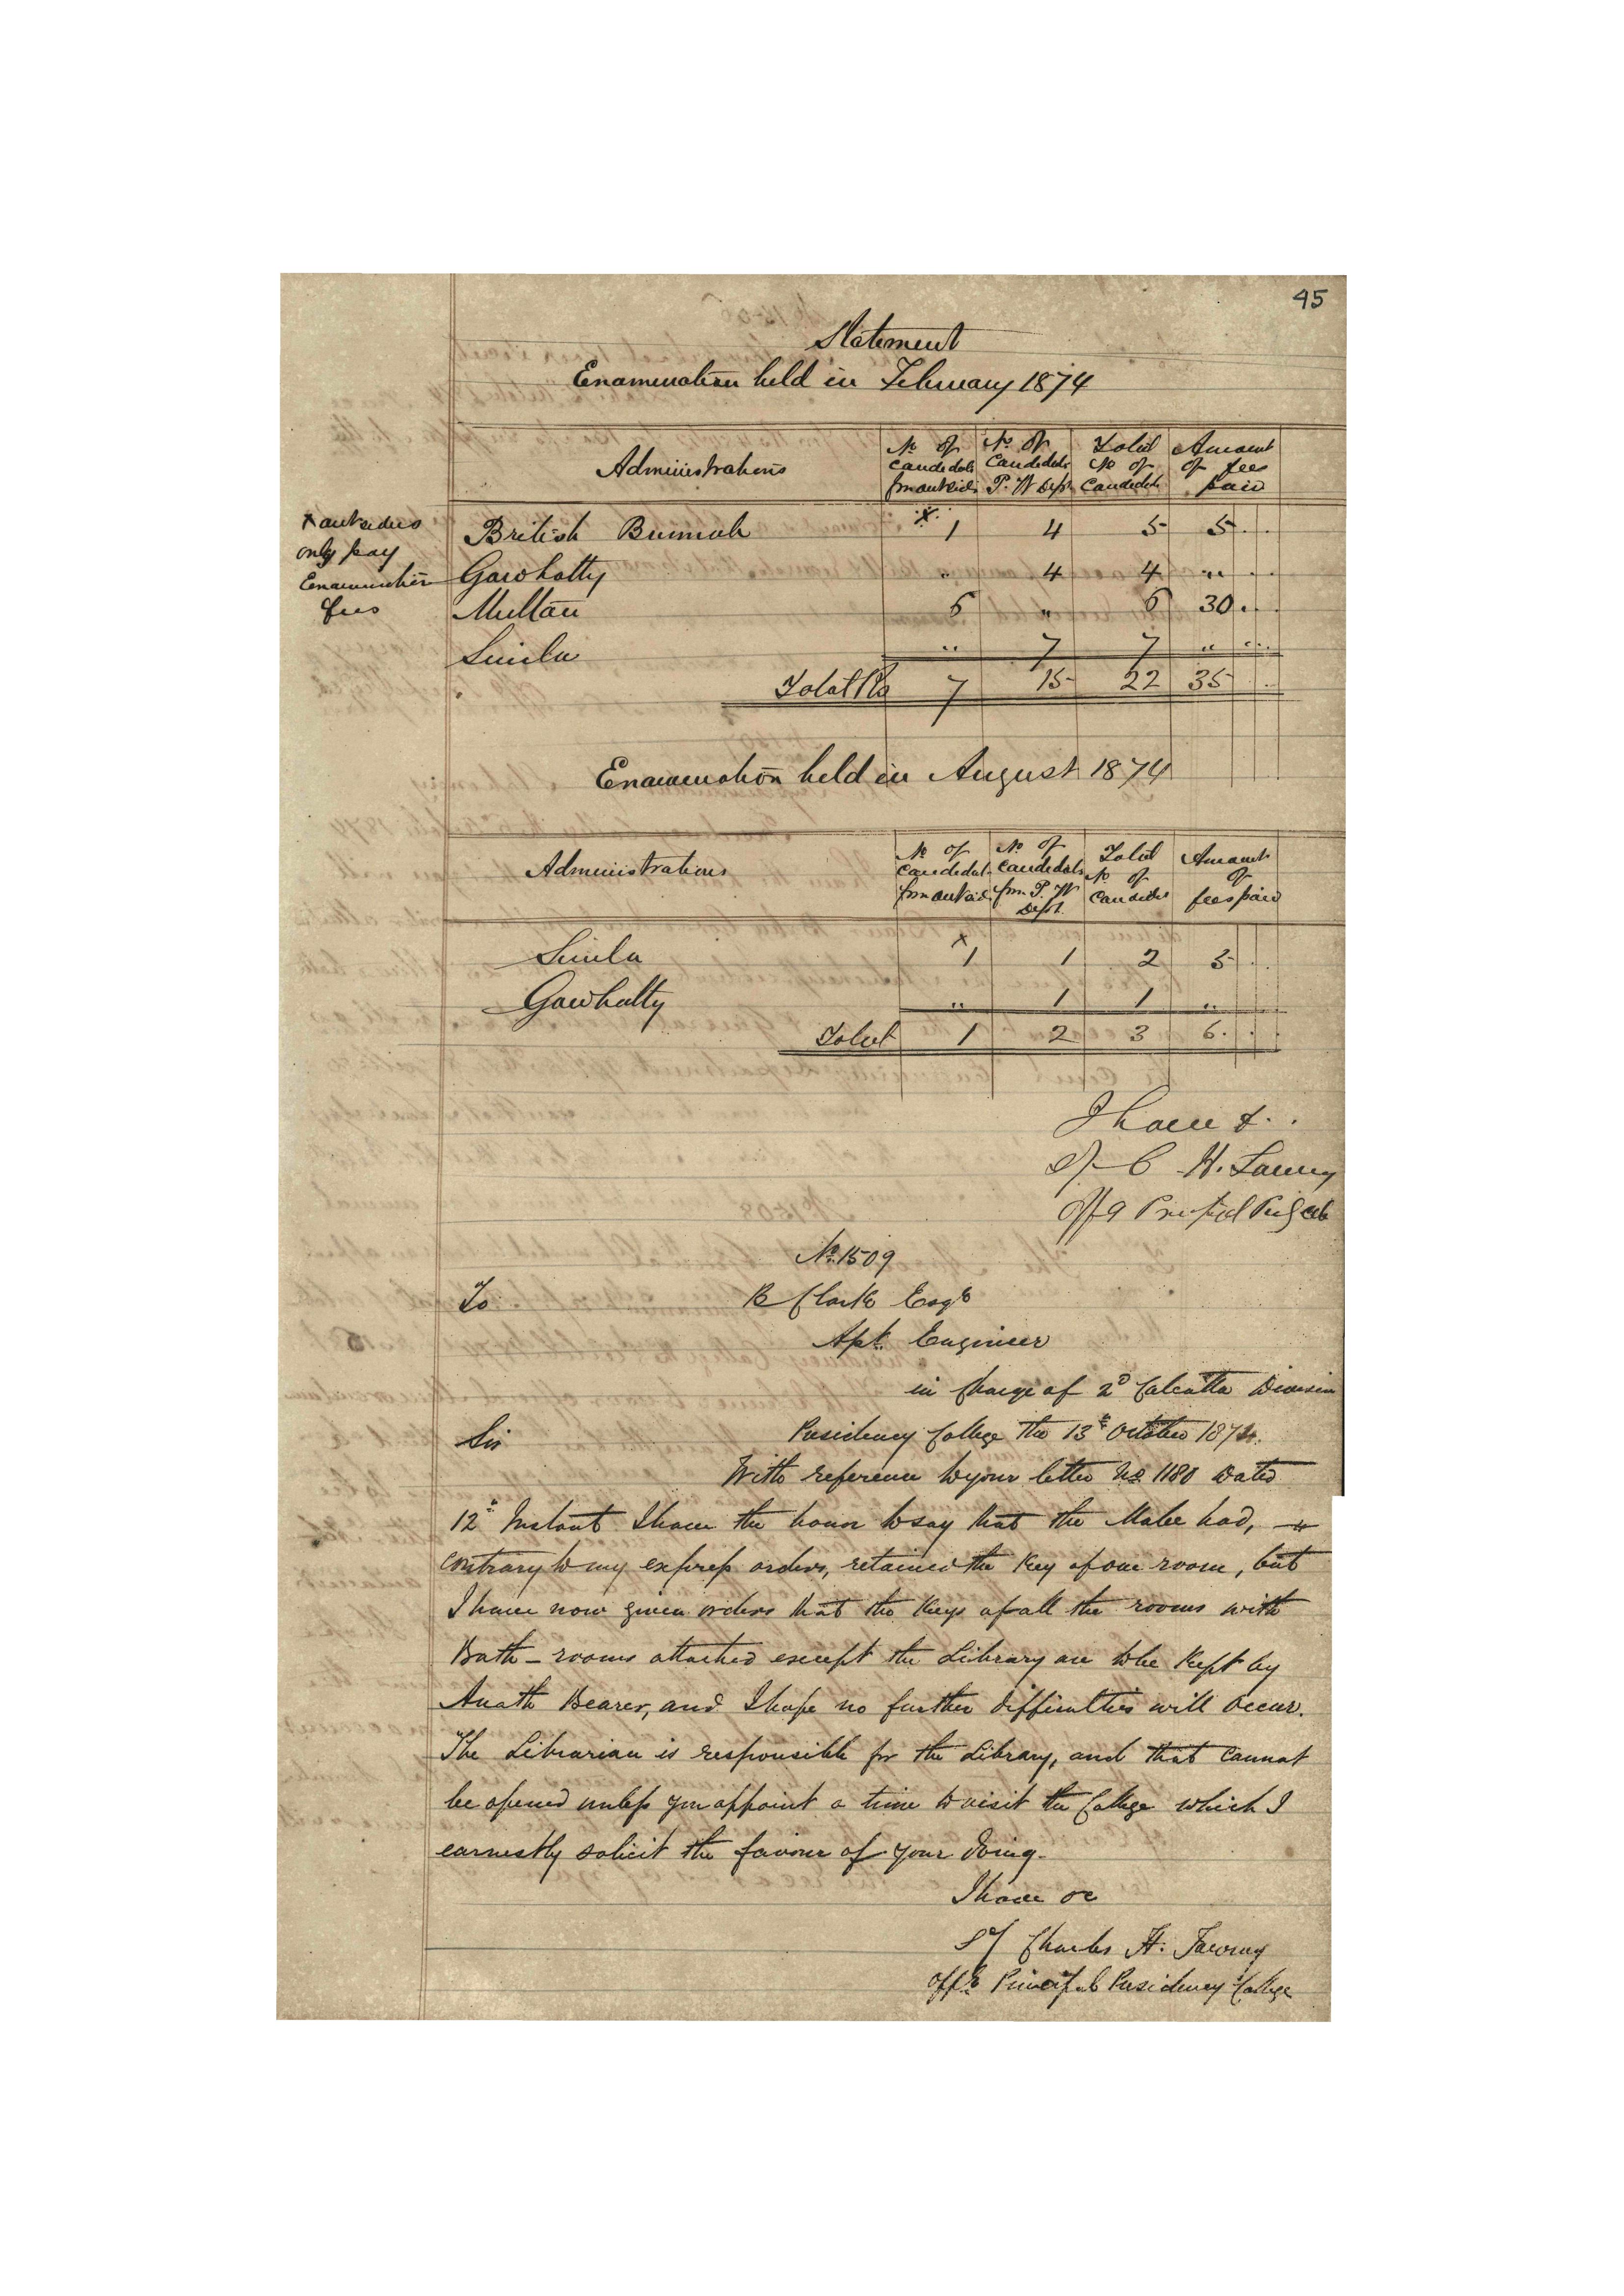 45
Statement
Examination held in February 1874
Administrations
No of Candidats from outside
No of Candidats P. W Dept
Total No of Candidats
Amount of fees paid
x outsiders
only pay
Examination
fees
British Burmah x 1 4 5 5 . .
Gowhatty " 4 4 " . .
Multan 6 " 6 30 . .
Simla " 7 7 " . .
Total Rs 7 15 22 35 . .
Examination held in August 1874
Administrations
No of Candidats from outside
No of Candidats from P. W Dept.
Total No of Candidts
Amount of fees paid
Simla x 1 1 2 5 . .
Gowhatty " 1 1 "
Total 1 2 3 5 . .
I have &. .
Sd/- C H. Tawney
Offg Principal
No. 1509
To Clark Esqr
Apt. Engineer
in charge of 2d Calcutta Division
Sir Presidency College The 13th October 1874.
With reference to your letter No. 1180 dated
12th Instant I have the honor to say that the Malee had,
contrary to my express orders, retained the key of one room, but
I have now given orders that the keys of all the rooms with
Bath-rooms attached except the Library are to be kept by
Anath Bearer, and I hope no further difficulties will occur.
The Librarian is responsible for the Library, and that cannot
be opened unless you appoint a time to visit the College which I
earnestly solicit the favour of your doing.
I have &c
Sd/ Charles H. Tawney
Offg Principal Presidency College